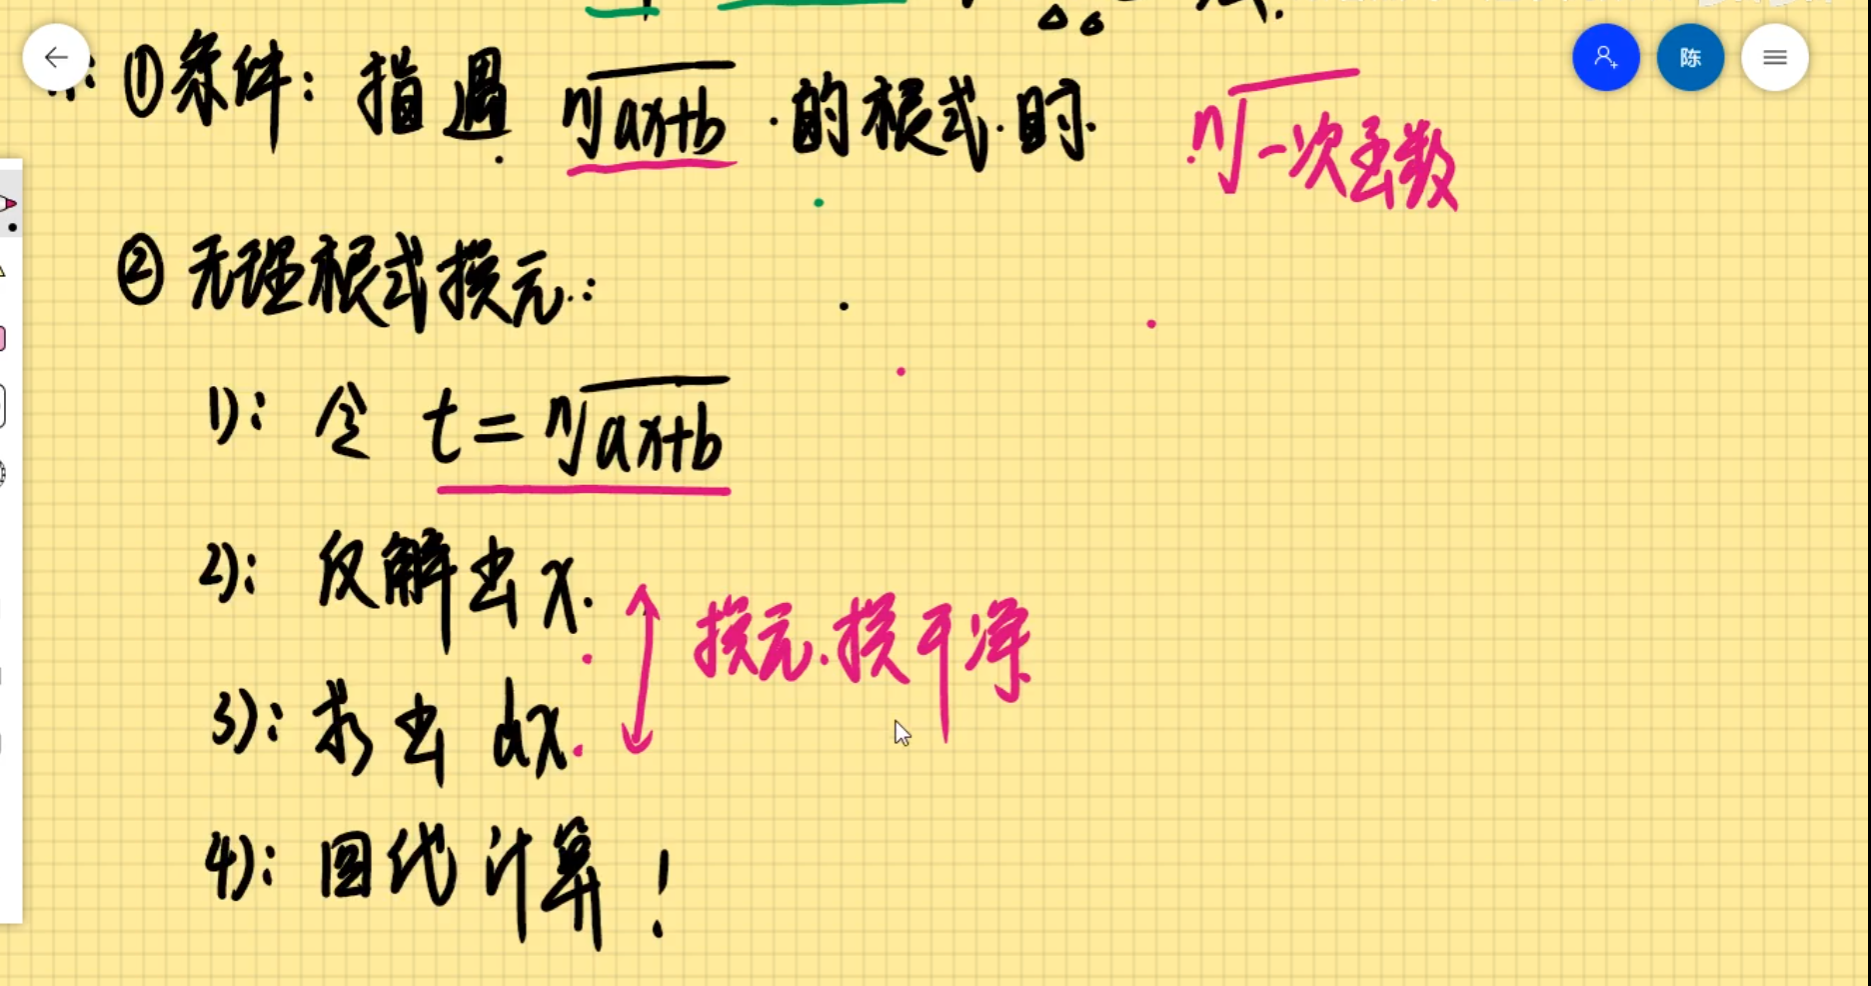 ①条件: 指遇 ⁿ√ax+b 的根式时. ⁿ√一次函数
陈
② 无理根式换元:
1): 令 t = ⁿ√ax+b
2): 反解出 x.
换元.换干净
3): 求出 dx.
4): 回代计算!